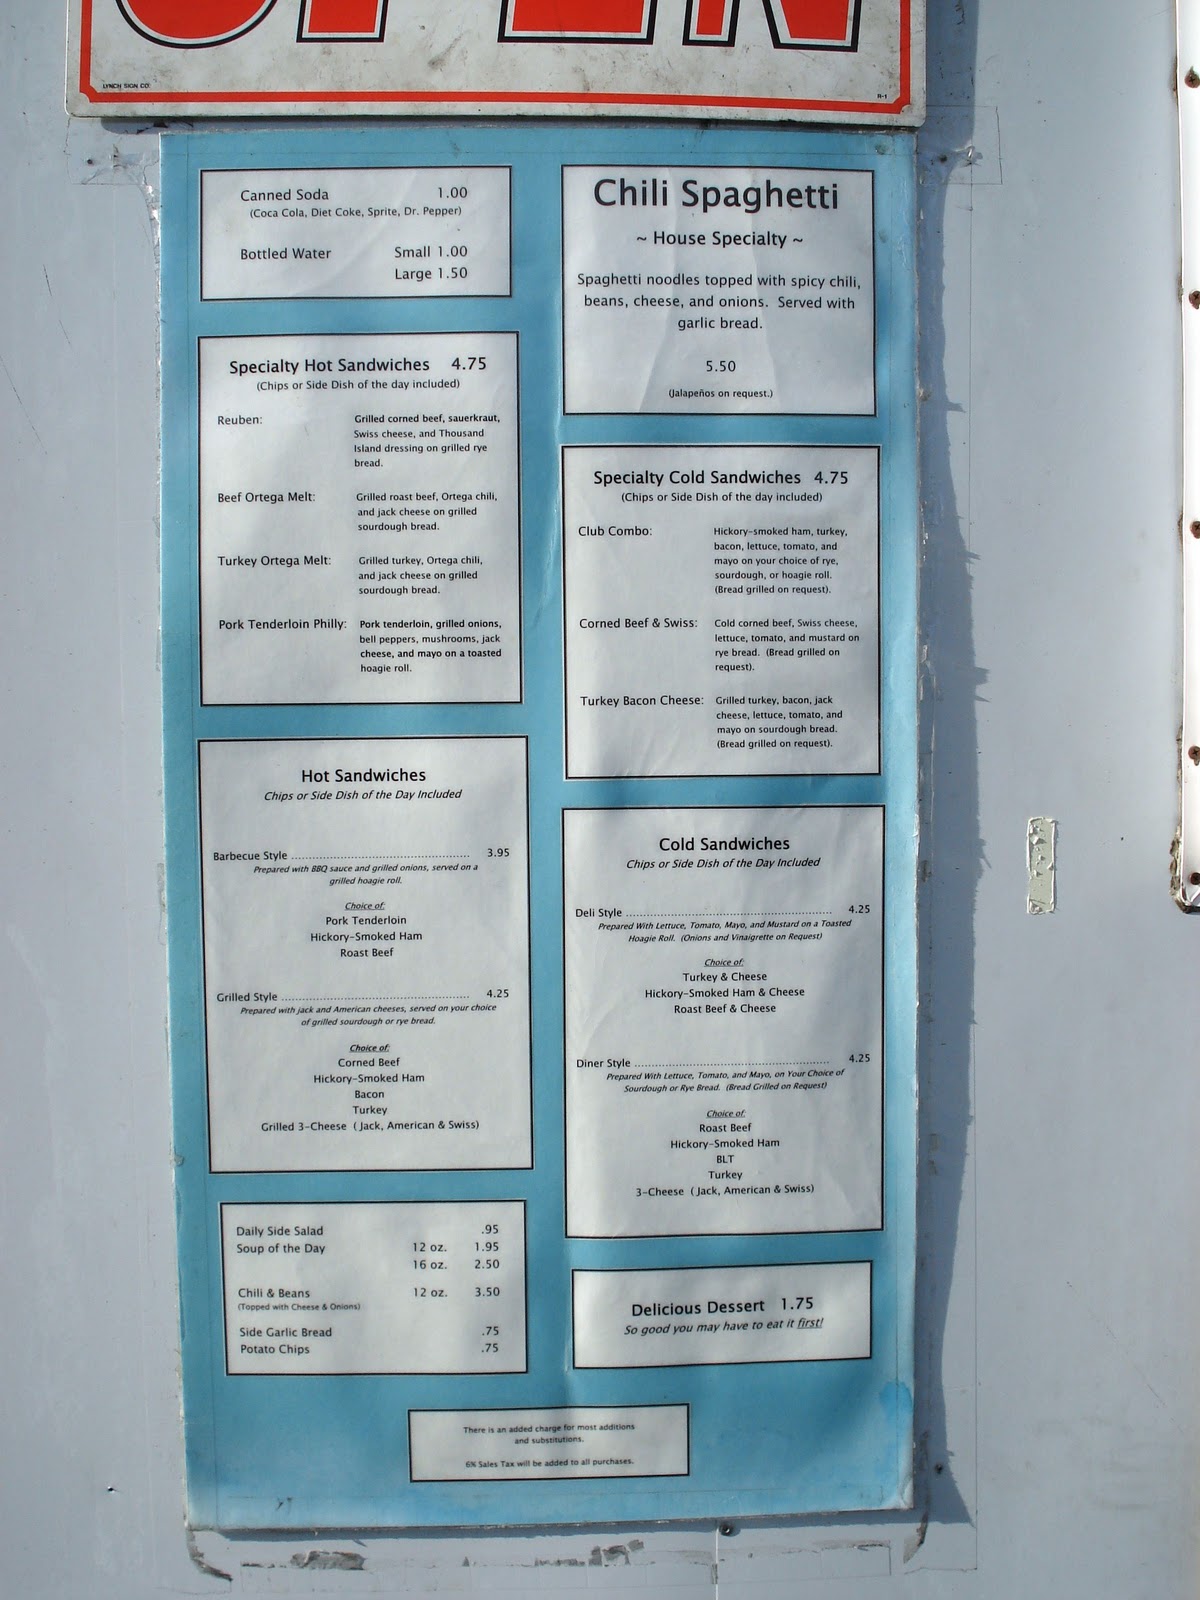 OPEN
LYNCH SIGN CO.
R-1
Canned Soda 1.00
(Coca Cola, Diet Coke, Sprite, Dr. Pepper)
Bottled Water Small 1.00
Large 1.50
Specialty Hot Sandwiches 4.75
(Chips or Side Dish of the day included)
Reuben: Grilled corned beef, sauerkraut,
Swiss cheese, and Thousand
Island dressing on grilled rye
bread.
Beef Ortega Melt: Grilled roast beef, Ortega chili,
and jack cheese on grilled
sourdough bread.
Turkey Ortega Melt: Grilled turkey, Ortega chili,
and jack cheese on grilled
sourdough bread.
Pork Tenderloin Philly: Pork tenderloin, grilled onions,
bell peppers, mushrooms, jack
cheese, and mayo on a toasted
hoagie roll.
Hot Sandwiches
Chips or Side Dish of the Day Included
Barbecue Style ........................................................ 3.95
Prepared with BBQ sauce and grilled onions, served on a
grilled hoagie roll.
Choice of:
Pork Tenderloin
Hickory-Smoked Ham
Roast Beef
Grilled Style ........................................................... 4.25
Prepared with jack and American cheeses, served on your choice
of grilled sourdough or rye bread.
Choice of:
Corned Beef
Hickory-Smoked Ham
Bacon
Turkey
Grilled 3-Cheese (Jack, American & Swiss)
Daily Side Salad .95
Soup of the Day 12 oz. 1.95
16 oz. 2.50
Chili & Beans 12 oz. 3.50
(Topped with Cheese & Onions)
Side Garlic Bread .75
Potato Chips .75
Chili Spaghetti
~ House Specialty ~
Spaghetti noodles topped with spicy chili,
beans, cheese, and onions. Served with
garlic bread.
5.50
(Jalapeños on request.)
Specialty Cold Sandwiches 4.75
(Chips or Side Dish of the day included)
Club Combo: Hickory-smoked ham, turkey,
bacon, lettuce, tomato, and
mayo on your choice of rye,
sourdough, or hoagie roll.
(Bread grilled on request).
Corned Beef & Swiss: Cold corned beef, Swiss cheese,
lettuce, tomato, and mustard on
rye bread. (Bread grilled on
request).
Turkey Bacon Cheese: Grilled turkey, bacon, jack
cheese, lettuce, tomato, and
mayo on sourdough bread.
(Bread grilled on request).
Cold Sandwiches
Chips or Side Dish of the Day Included
Deli Style ................................................................ 4.25
Prepared With Lettuce, Tomato, Mayo, and Mustard on a Toasted
Hoagie Roll. (Onions and Vinaigrette on Request)
Choice of:
Turkey & Cheese
Hickory-Smoked Ham & Cheese
Roast Beef & Cheese
Diner Style ............................................................. 4.25
Prepared With Lettuce, Tomato, and Mayo, on Your Choice of
Sourdough or Rye Bread. (Bread Grilled on Request)
Choice of:
Roast Beef
Hickory-Smoked Ham
BLT
Turkey
3-Cheese (Jack, American & Swiss)
Delicious Dessert 1.75
So good you may have to eat it first!
There is an added charge for most additions
and substitutions.
6% Sales Tax will be added to all purchases.